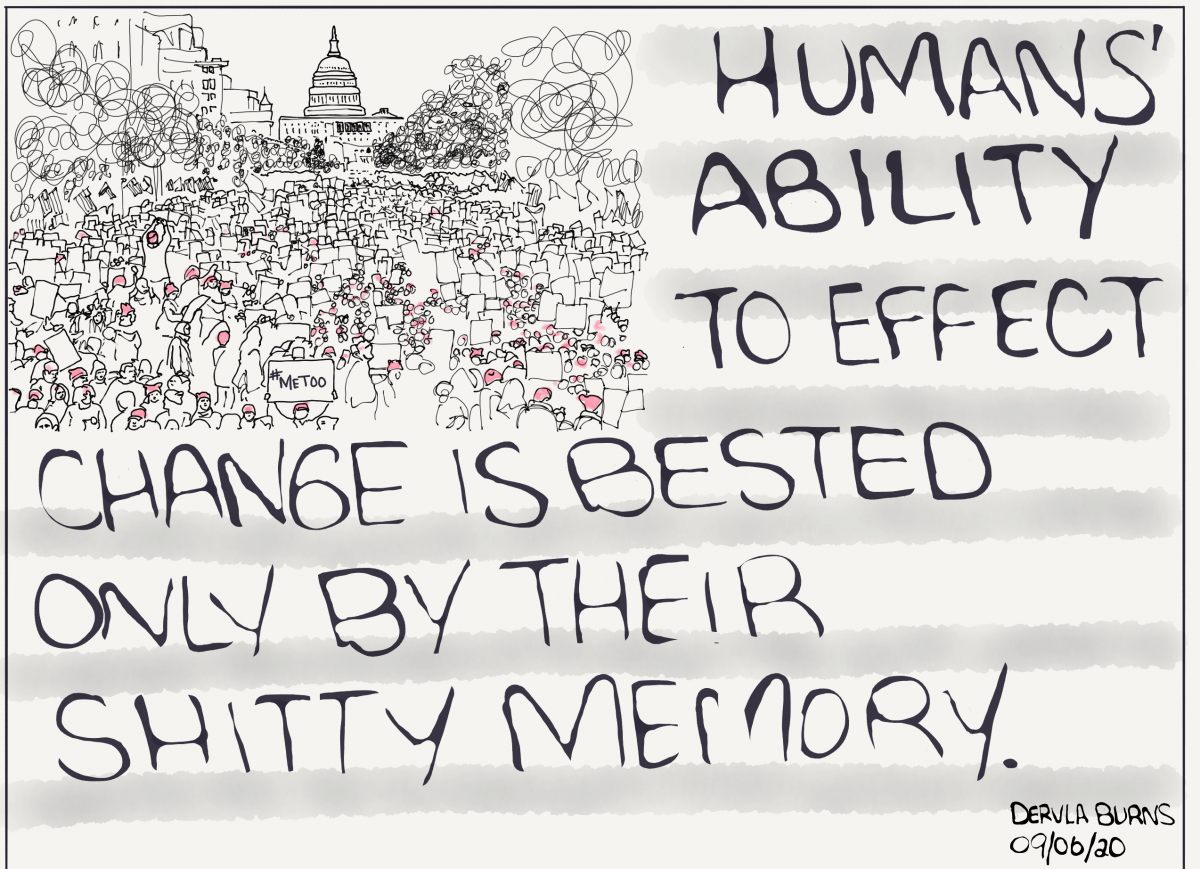 HUMANS'
ABILITY
TO EFFECT
#METOO
CHANGE IS BESTED
ONLY BY THEIR
SHITTY MEMORY.
DERVLA BURNS
09/06/20